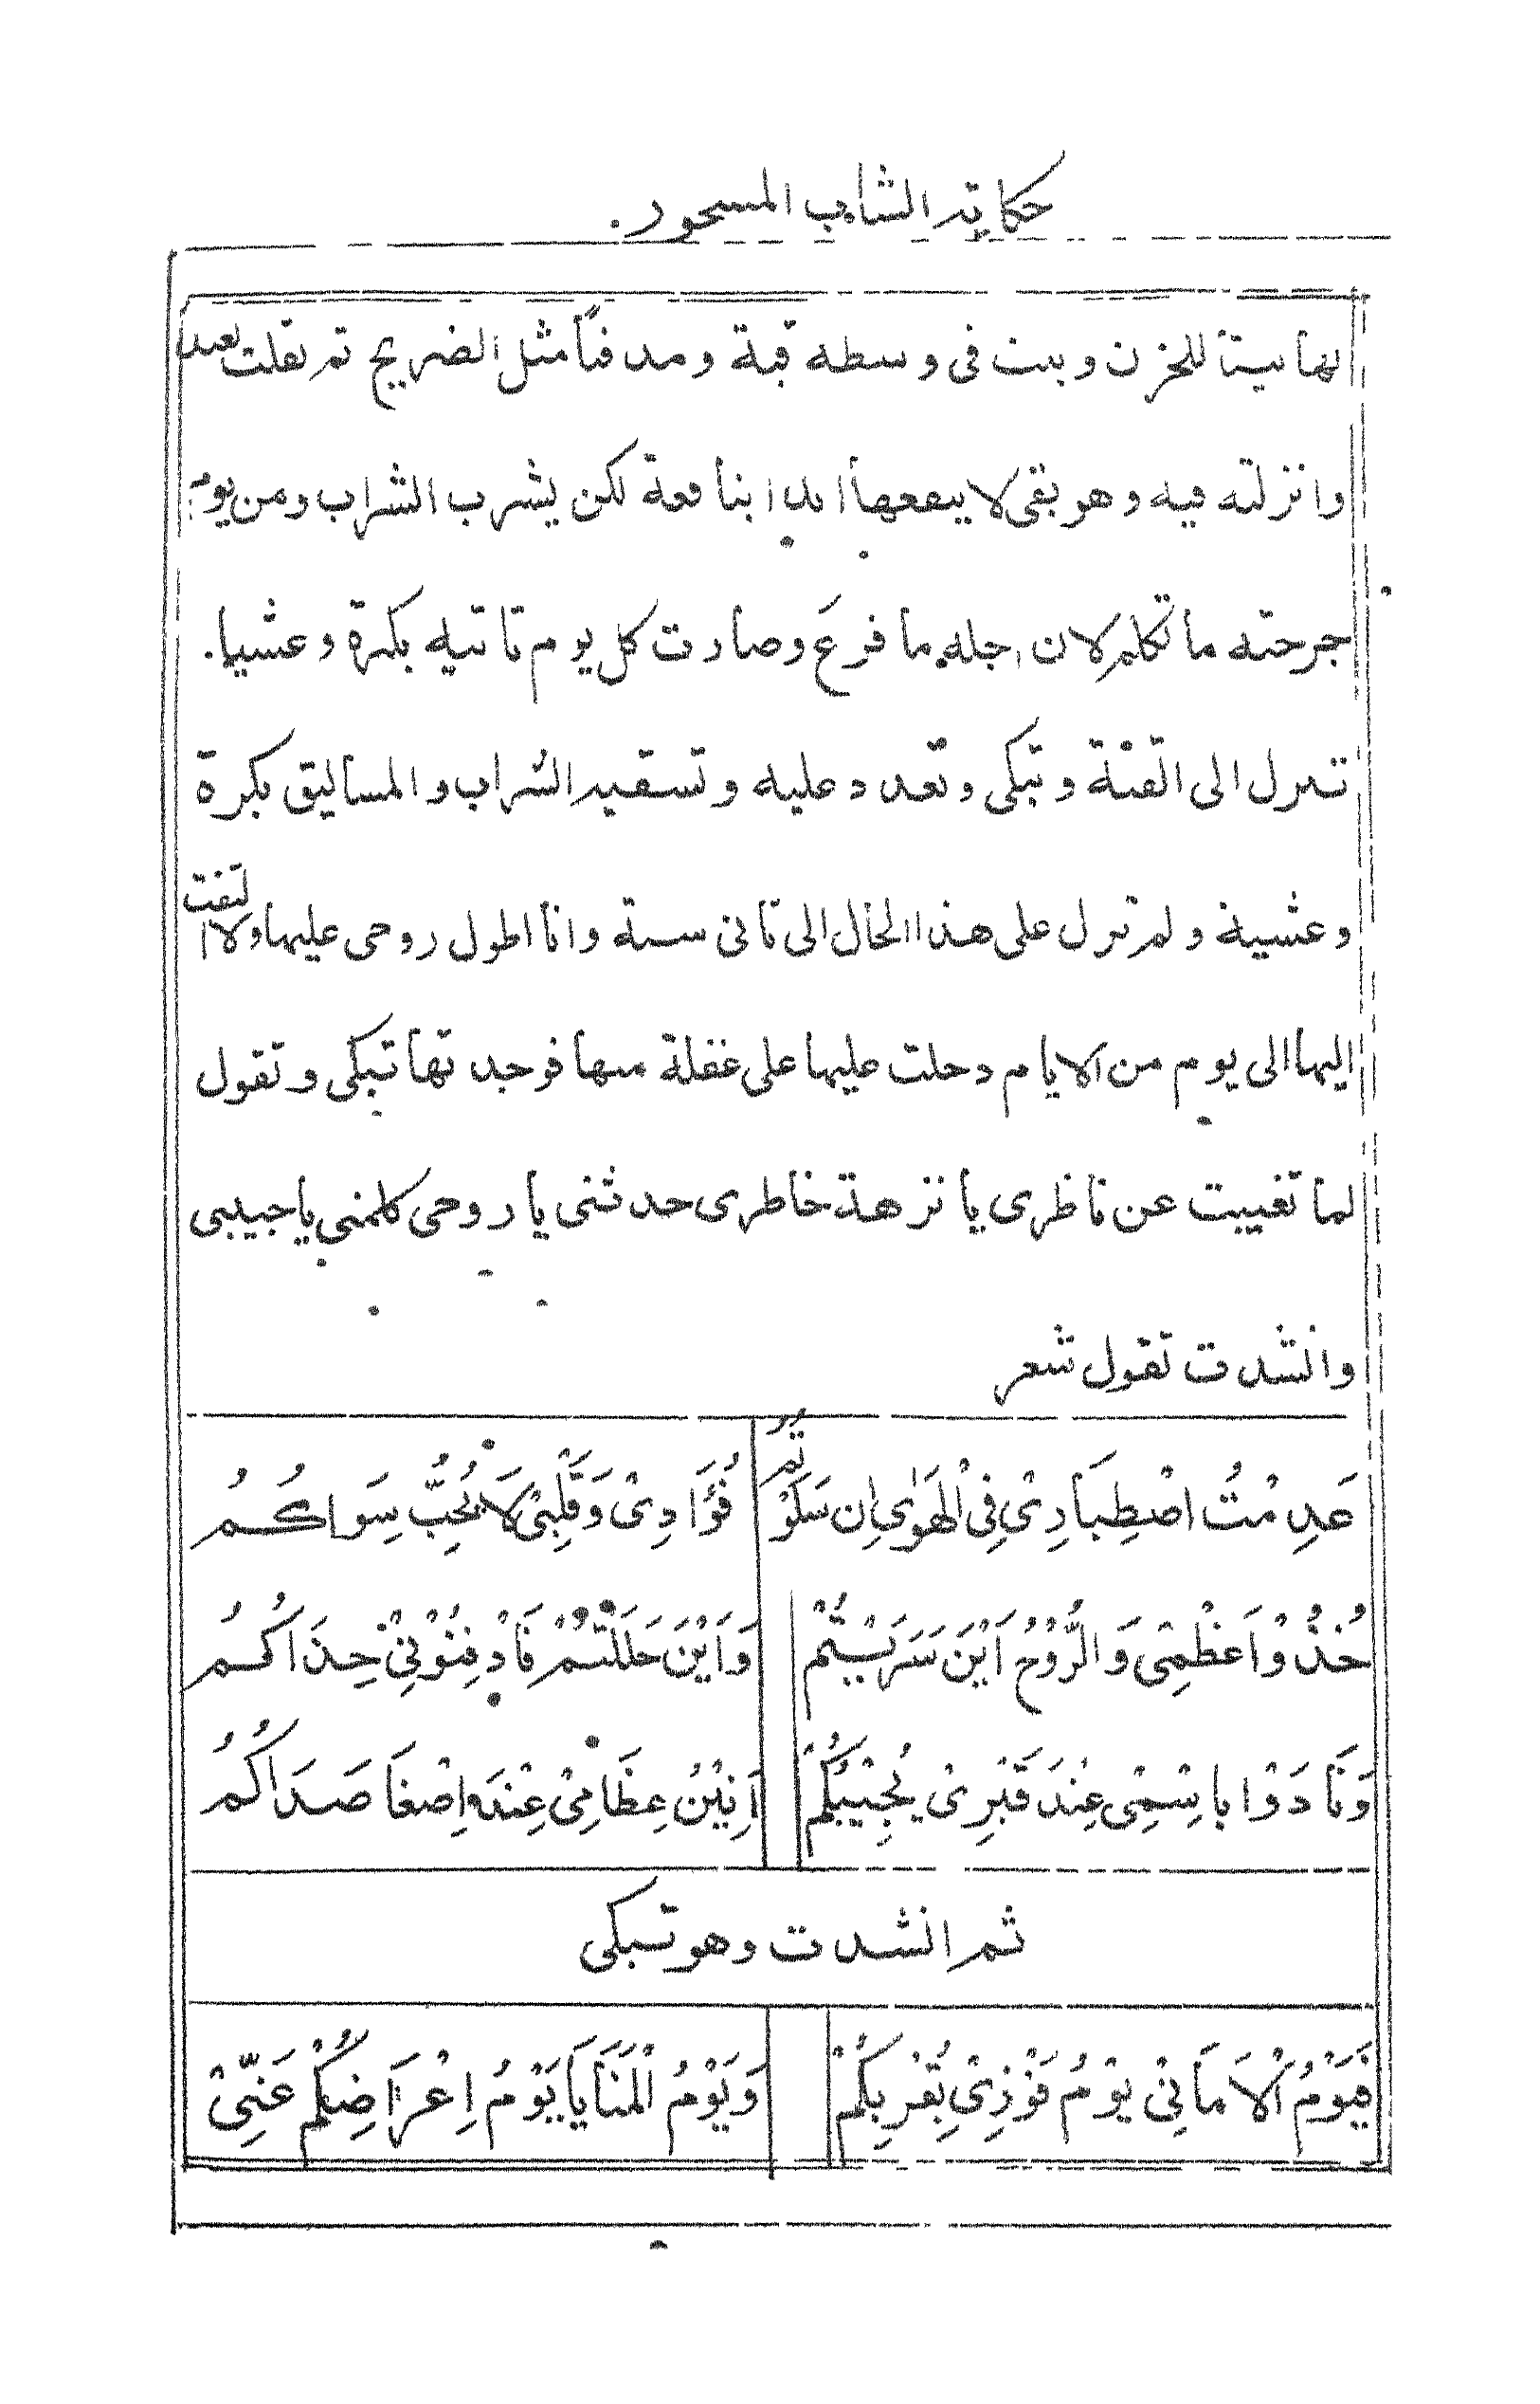 حكاية الشاب المسحور.
لها بيتاً للحزن وبنت فى وسطه قبة ومدفناً مثل الضريح ثم نقلت العبد
وانزلته فيه وهو بقى لا ينفعها ابدا بنافعة لكن يشرب الشراب ومن يوم
جرحته ما تكلم لان اجله ما فرغ وصارت كل يوم تاتيه بكرة وعشيا.
تنزل الى القبة وتبكى وتعدد عليه وتسقيه الشراب والمساليق بكرة
وعشية ولم تزل على هذا الحال الى ثانى سنة وانا اطول روحى عليها ولا التفت
اليها الى يوم من الايام دخلت عليها على غفلة منها فوجدتها تبكى وتقول
لما تغيبت عن ناظرى يا نزهة خاطرى حدثنى يا روحى كلمنى يا حبيبى
وانشدت تقول شعر
عَدِمْتُ اصْطِبَارِىْ فِى الْهَوٰى اِن سَلَوْتُمُ فُؤَادِىْ وَقَلْبِىْ لَا يُحِبُّ سِوَاكُمُ
خُذُوْا عَظْمِىْ وَالرُّوْحُ اَيْنَ سَرَيْتُمْ وَاَيْنَ حَلَلْتُمْ فَادْفِنُوْنِىْ حِذَاكُمُ
وَنَادَوْا بِاسْمِىْ عِنْدَ قَبْرِىْ يُجِيْبُكُمْ اَنِيْنُ عِظَامِىْ عِنْدَ اِصْغَا صَدَاكُمُ
ثم انشدت وهو تبكى
فَيَوْمُ الْاَمَانِىْ يَوْمُ فَوْزِىْ بِقُرْبِكُمْ وَيَوْمُ الْمَنَايَا يَوْمُ اِعْرَاضِكُمْ عَنِّىْ